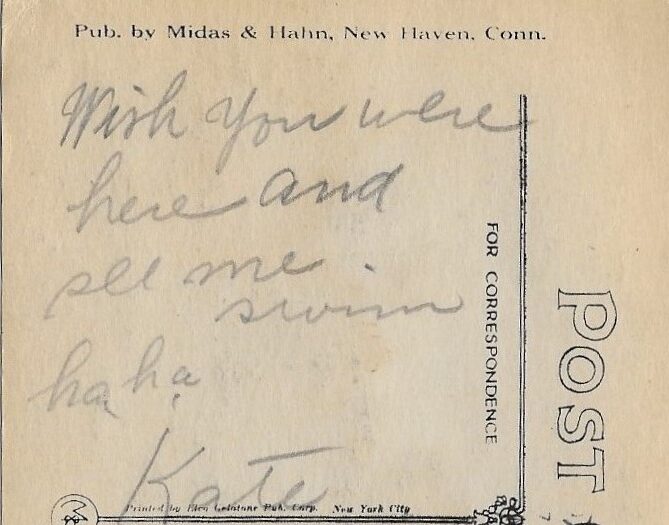 Pub. by Midas & Hahn, New Haven, Conn.
Wish you were
here and
see me
swim
ha ha
Kate
FOR CORRESPONDENCE
POST
Printed by Pub. Corp. New York City